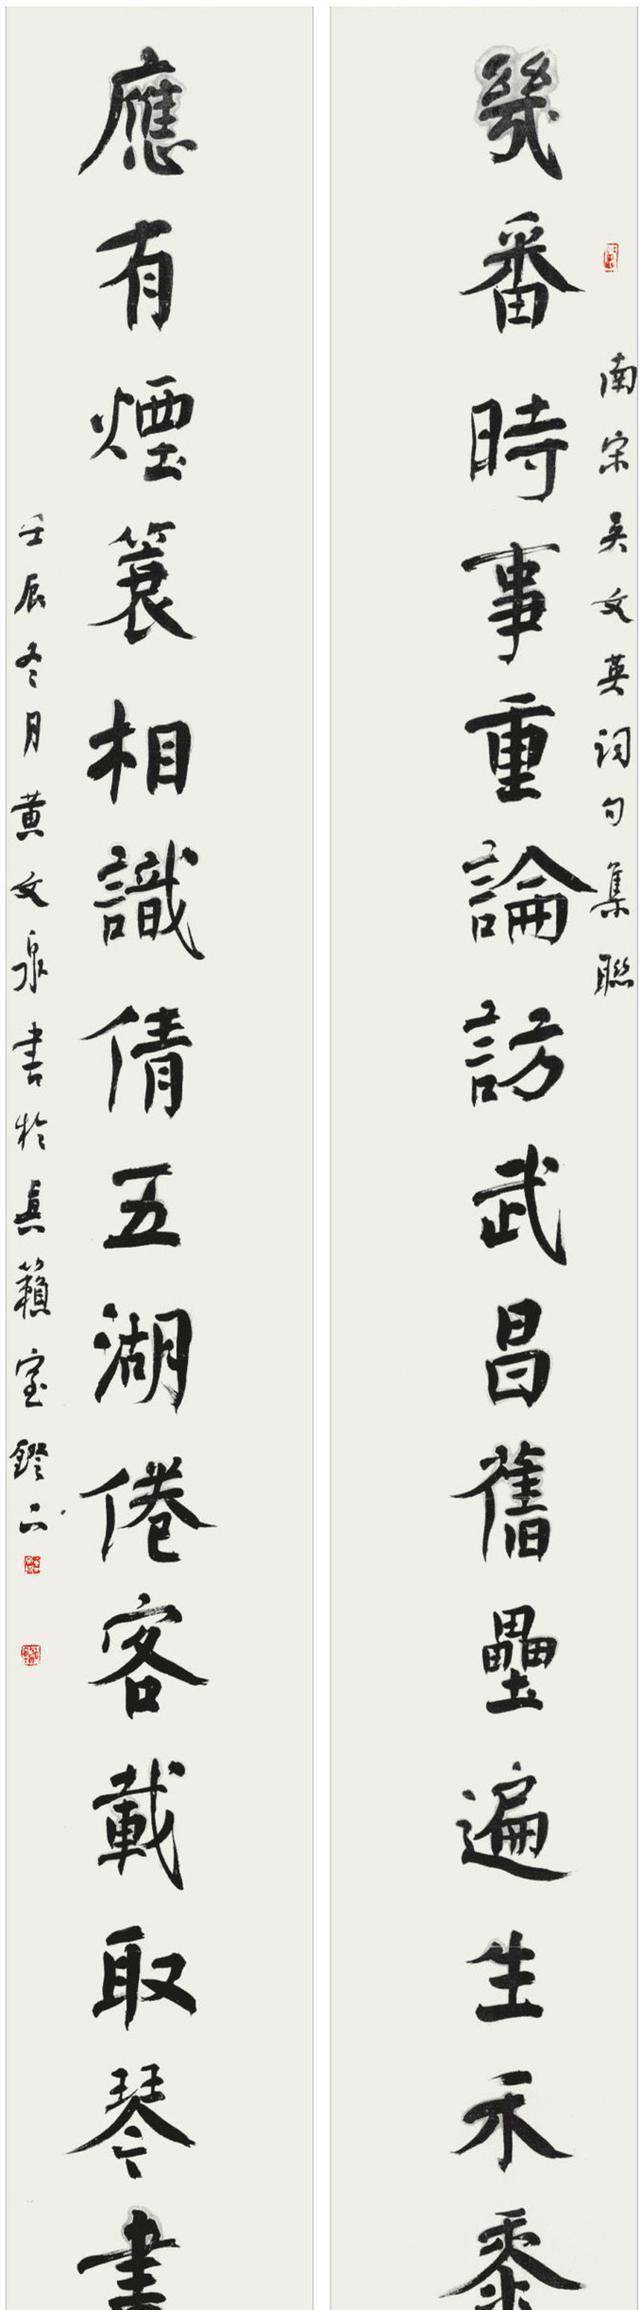 南宋吴文英词句集聯
幾番時事重論訪武昌舊壘遍生禾黍
應有煙簑相識倩五湖倦客載取琴書
壬辰冬月黄文泉書於真籟室鐙下